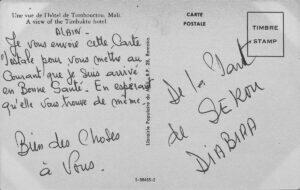 Une vue de l'hôtel de Tombouctou. Mali.
A view of the Timbuktu hotel
CARTE
POSTALE
TIMBRE
STAMP
ALBIN -
Je vous envoie cette Carte
Postale pour vous mettre au
Courant que Je Suis arrivé
en Bonne Santé. En espérant
qu'elle vous trouve de même.
Bien des Choses
à Vous.
De la Part
de SEKOU
DIABIRA
Librairie Populaire du Mali B.P. 28, Bamako